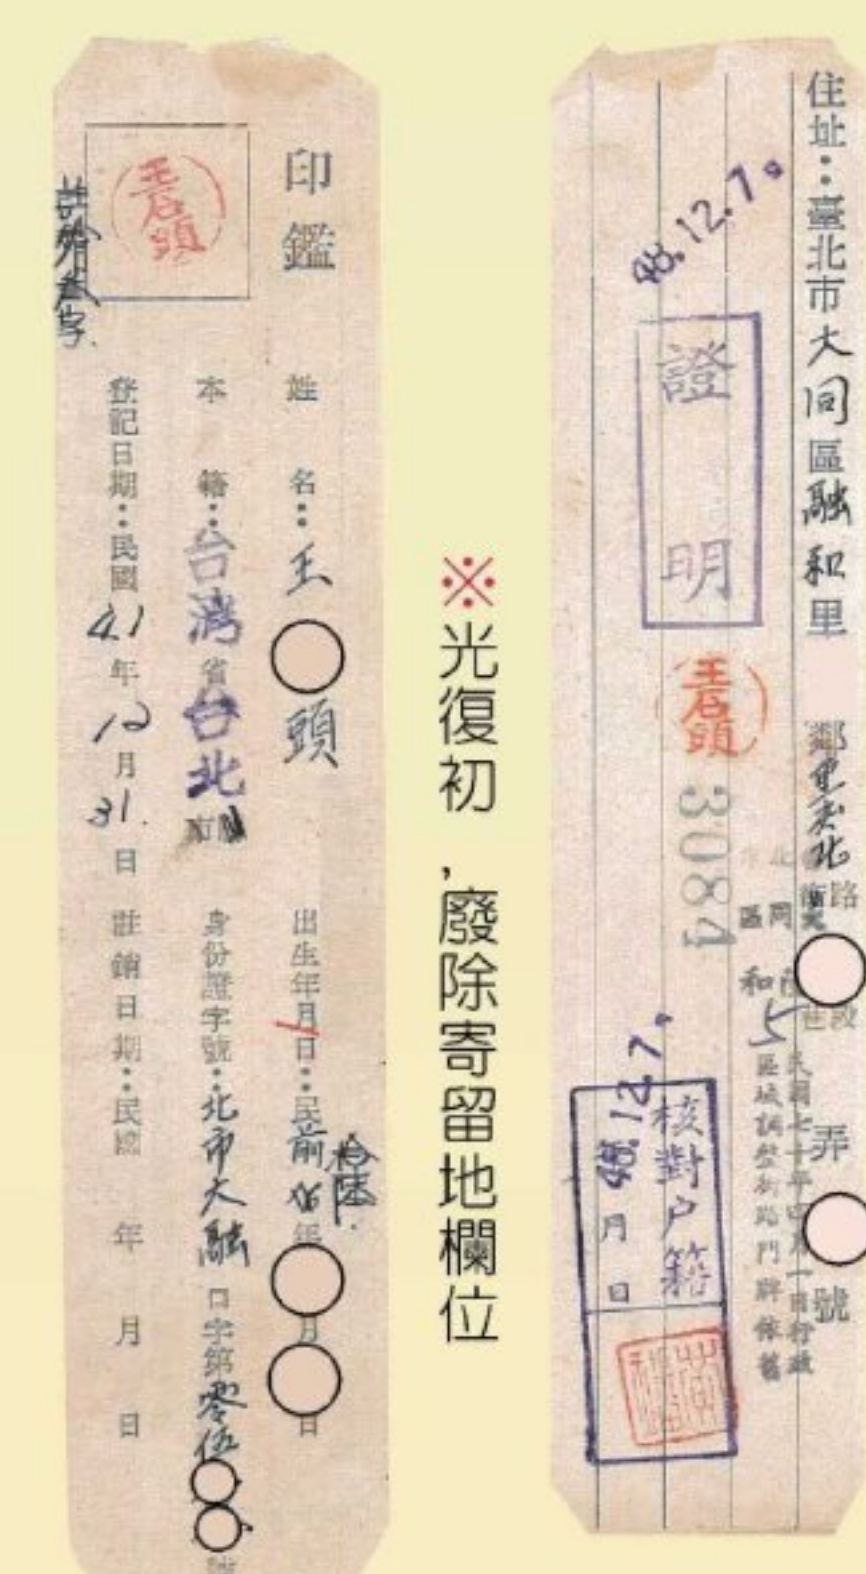 住址：臺北市大同區融和里
鄰 重慶北路
段
弄
號
民國七十年四月一日行政
區域調整街路門牌依舊
48.12.7.
證明
3084
48.12.7.
核對戶籍
月 日
※光復初,廢除寄留地欄位
印鑑
姓名：王 頭
出生年月日：民前拾陸年 月 日
本籍：台灣省台北市
身份證字號：北市大融口字第零伍 號
登記日期：民國41年12月31日
註銷日期：民國 年 月 日